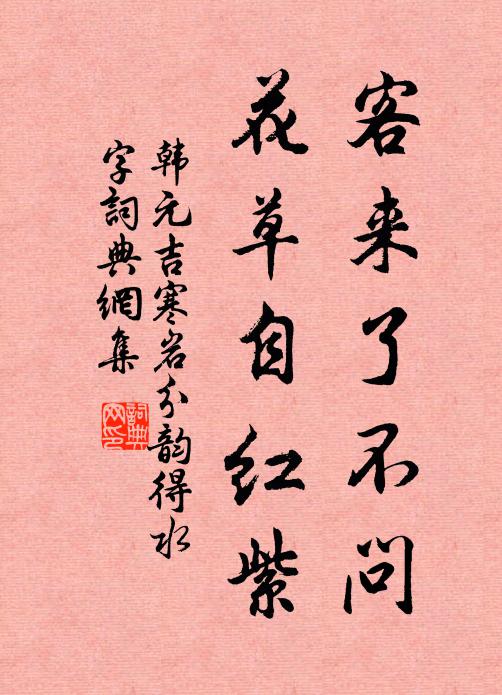 客来了不问
花草自红紫
韩元吉寒岩分韵得水
字詞典網集
詞典
网印